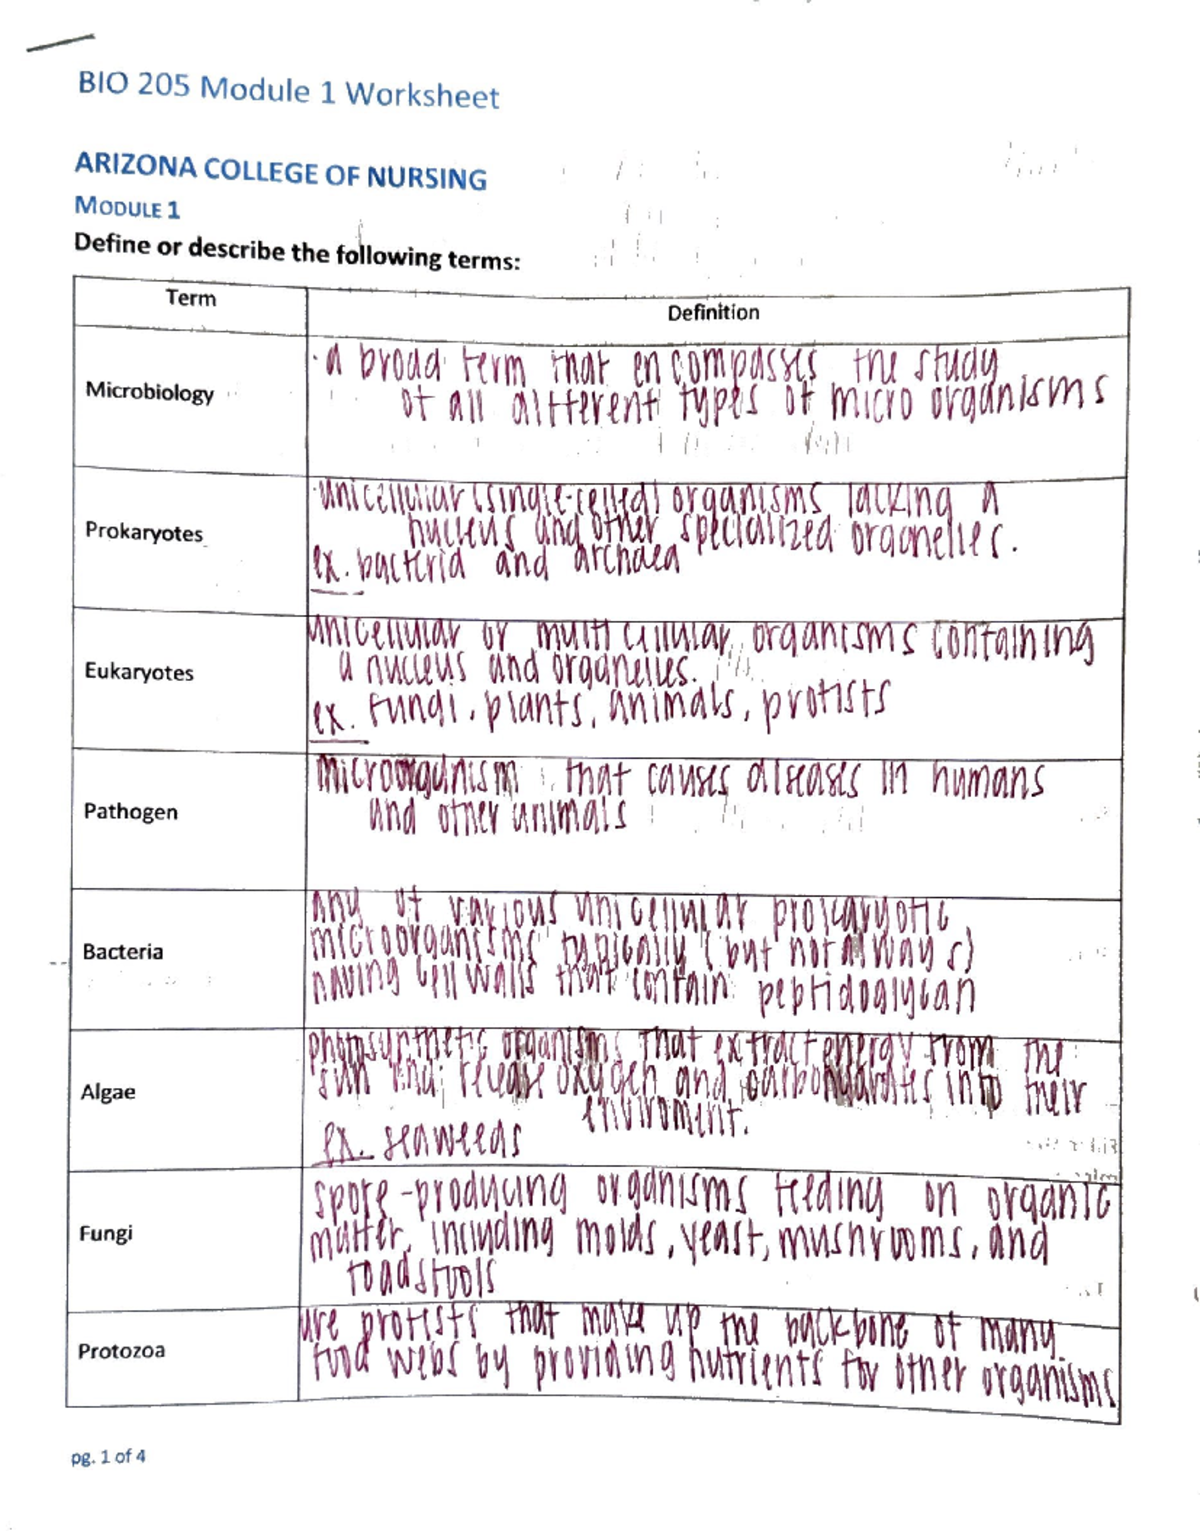 BIO 205 Module 1 Worksheet
ARIZONA COLLEGE OF NURSING
MODULE 1
Define or describe the following terms:
Term
Definition
Microbiology
· a broad term that encompasses the study
of all different types of micro organisms
Prokaryotes
· unicellular (single-celled) organisms lacking a
nucleus and other specialized organelles.
ex. bacteria and archaea
Eukaryotes
unicellular or multi cellular organisms containing
a nucleus and organelles.
ex. fungi, plants, animals, protists
Pathogen
microorganism that causes diseases in humans
and other animals
Bacteria
any of various unicellular prokaryotic
microorganisms typically (but not always)
having cell walls that contain peptidoglycan
Algae
photosynthetic organisms that extract energy from the
sun and release oxygen and carbohydrates into their
enviroment.
ex. seaweeds
Fungi
spore-producing organisms feeding on organic
matter, including molds, yeast, mushrooms, and
toadstools
Protozoa
are protists that make up the backbone of many
food webs by providing nutrients for other organisms
pg. 1 of 4